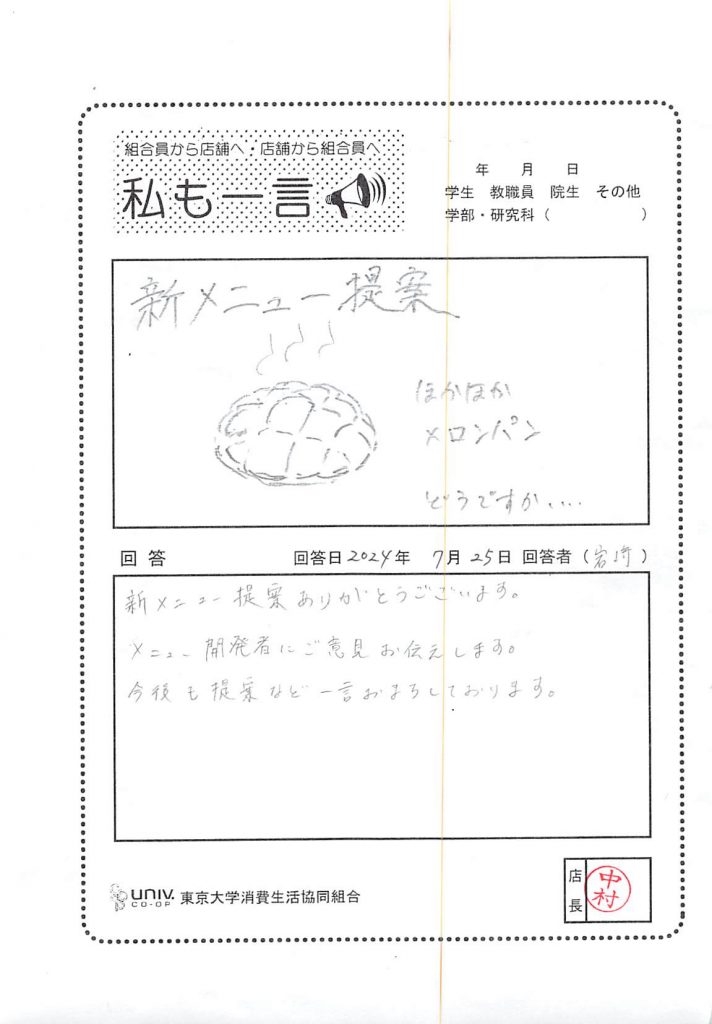 組合員から店舗へ・店舗から組合員へ
私も一言
年 月 日
学生 教職員 院生 その他
学部・研究科( )
新メニュー提案
ほかほか
メロンパン
どうですか....
回答 回答日2024年 7月25日 回答者(岩崎)
新メニュー提案ありがとうございます。
メニュー開発者にご意見お伝えします。
今後も提案など一言おまちしております。
UNIV.
CO-OP
東京大学消費生活協同組合
店長
中村